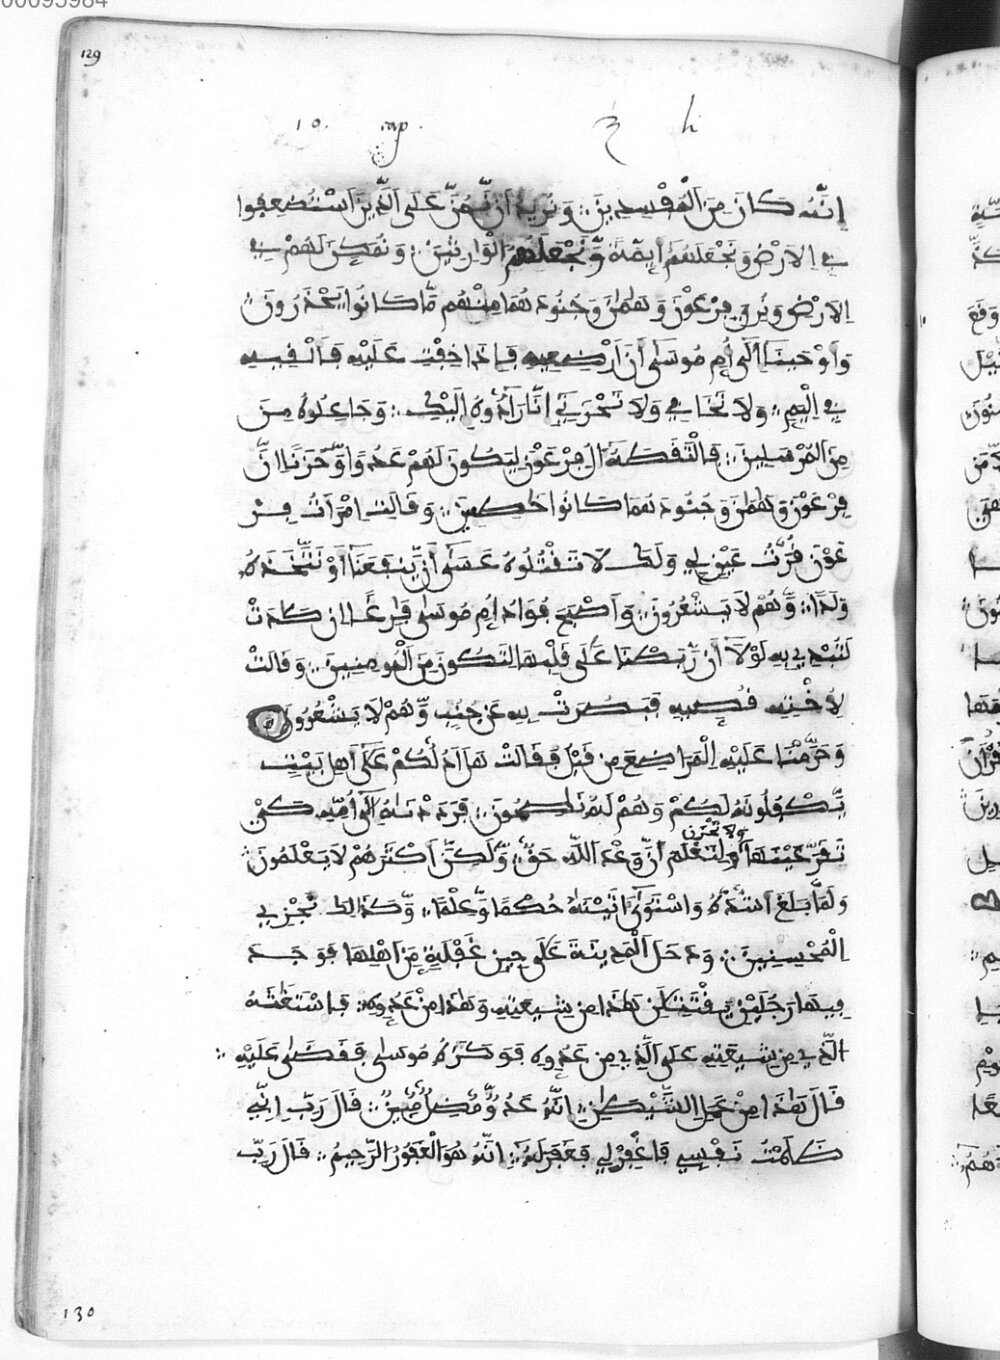 00095984
129
10. rap. h
إِنَّهُ كَانَ مِنَ الْمُفْسِدِينَ وَنُرِيدُ أَن نَّمُنَّ عَلَى الَّذِينَ اسْتُضْعِفُوا
فِي الْأَرْضِ وَنَجْعَلَهُمْ أَيِمَّةً وَّنَجْعَلَهُمُ الْوَارِثِينَ وَنُمَكِّنَ لَهُمْ فِي
الْأَرْضِ وَنُرِيَ فِرْعَوْنَ وَهَٰمَٰنَ وَجُنُودَهُمَا مِنْهُم مَّا كَانُوا يَحْذَرُونَ
وَأَوْحَيْنَا إِلَىٰ أُمِّ مُوسَىٰ أَنْ أَرْضِعِيهِ فَإِذَا خِفْتِ عَلَيْهِ فَأَلْقِيهِ
فِي الْيَمِّ وَلَا تَخَافِي وَلَا تَحْزَنِي إِنَّا رَادُّوهُ إِلَيْكِ وَجَاعِلُوهُ مِنَ
مِنَ الْمُرْسَلِينَ فَالْتَقَطَهُ آلُ فِرْعَوْنَ لِيَكُونَ لَهُمْ عَدُوًّا وَّحَزَنًا إِنَّ
فِرْعَوْنَ وَهَٰمَٰنَ وَجُنُودَهُمَا كَانُوا خَٰطِئِينَ وَقَالَتِ امْرَأَتُ فِرْ
عَوْنَ قُرَّتُ عَيْنٍ لِّي وَلَكَ لَا تَقْتُلُوهُ عَسَىٰ أَن يَّنفَعَنَا أَوْ نَتَّخِذَهُ
وَلَدًا وَّهُمْ لَا يَشْعُرُونَ وَأَصْبَحَ فُؤَادُ أُمِّ مُوسَىٰ فَٰرِغًا إِن كَادَتْ
لَتُبْدِي بِهِ لَوْلَا أَن رَّبَطْنَا عَلَىٰ قَلْبِهَا لِتَكُونَ مِنَ الْمُومِنِينَ وَقَالَتْ
لِأُخْتِهِ قُصِّيهِ فَبَصُرَتْ بِهِ عَن جُنُبٍ وَّهُمْ لَا يَشْعُرُونَ
وَحَرَّمْنَا عَلَيْهِ الْمَرَاضِعَ مِن قَبْلُ فَقَالَتْ هَلْ أَدُلُّكُمْ عَلَىٰ أَهْلِ بَيْتٍ
يَّكْفُلُونَهُ لَكُمْ وَهُمْ لَهُ نَٰصِحُونَ فَرَدَدْنَٰهُ إِلَىٰ أُمِّهِ كَيْ
وَلَا تَحْزَنَ
تَقَرَّ عَيْنُهَا وَلِتَعْلَمَ أَنَّ وَعْدَ اللَّهِ حَقٌّ وَّلَٰكِنَّ أَكْثَرَهُمْ لَا يَعْلَمُونَ
وَلَمَّا بَلَغَ أَشُدَّهُ وَاسْتَوَىٰ آتَيْنَٰهُ حُكْمًا وَّعِلْمًا وَّكَذَٰلِكَ نَجْزِي
الْمُحْسِنِينَ وَدَخَلَ الْمَدِينَةَ عَلَىٰ حِينِ غَفْلَةٍ مِّنْ أَهْلِهَا فَوَجَدَ
فِيهَا رَجُلَيْنِ يَقْتَتِلَٰنِ هَٰذَا مِن شِيعَتِهِ وَهَٰذَا مِنْ عَدُوِّهِ فَاسْتَغَٰثَهُ
الَّذِي مِن شِيعَتِهِ عَلَى الَّذِي مِنْ عَدُوِّهِ فَوَكَزَهُ مُوسَىٰ فَقَضَىٰ عَلَيْهِ
قَالَ هَٰذَا مِنْ عَمَلِ الشَّيْطَٰنِ إِنَّهُ عَدُوٌّ مُّضِلٌّ مُّبِينٌ قَالَ رَبِّ إِنِّي
ظَلَمْتُ نَفْسِي فَاغْفِرْ لِي فَغَفَرَ لَهُ إِنَّهُ هُوَ الْغَفُورُ الرَّحِيمُ قَالَ رَبِّ
130